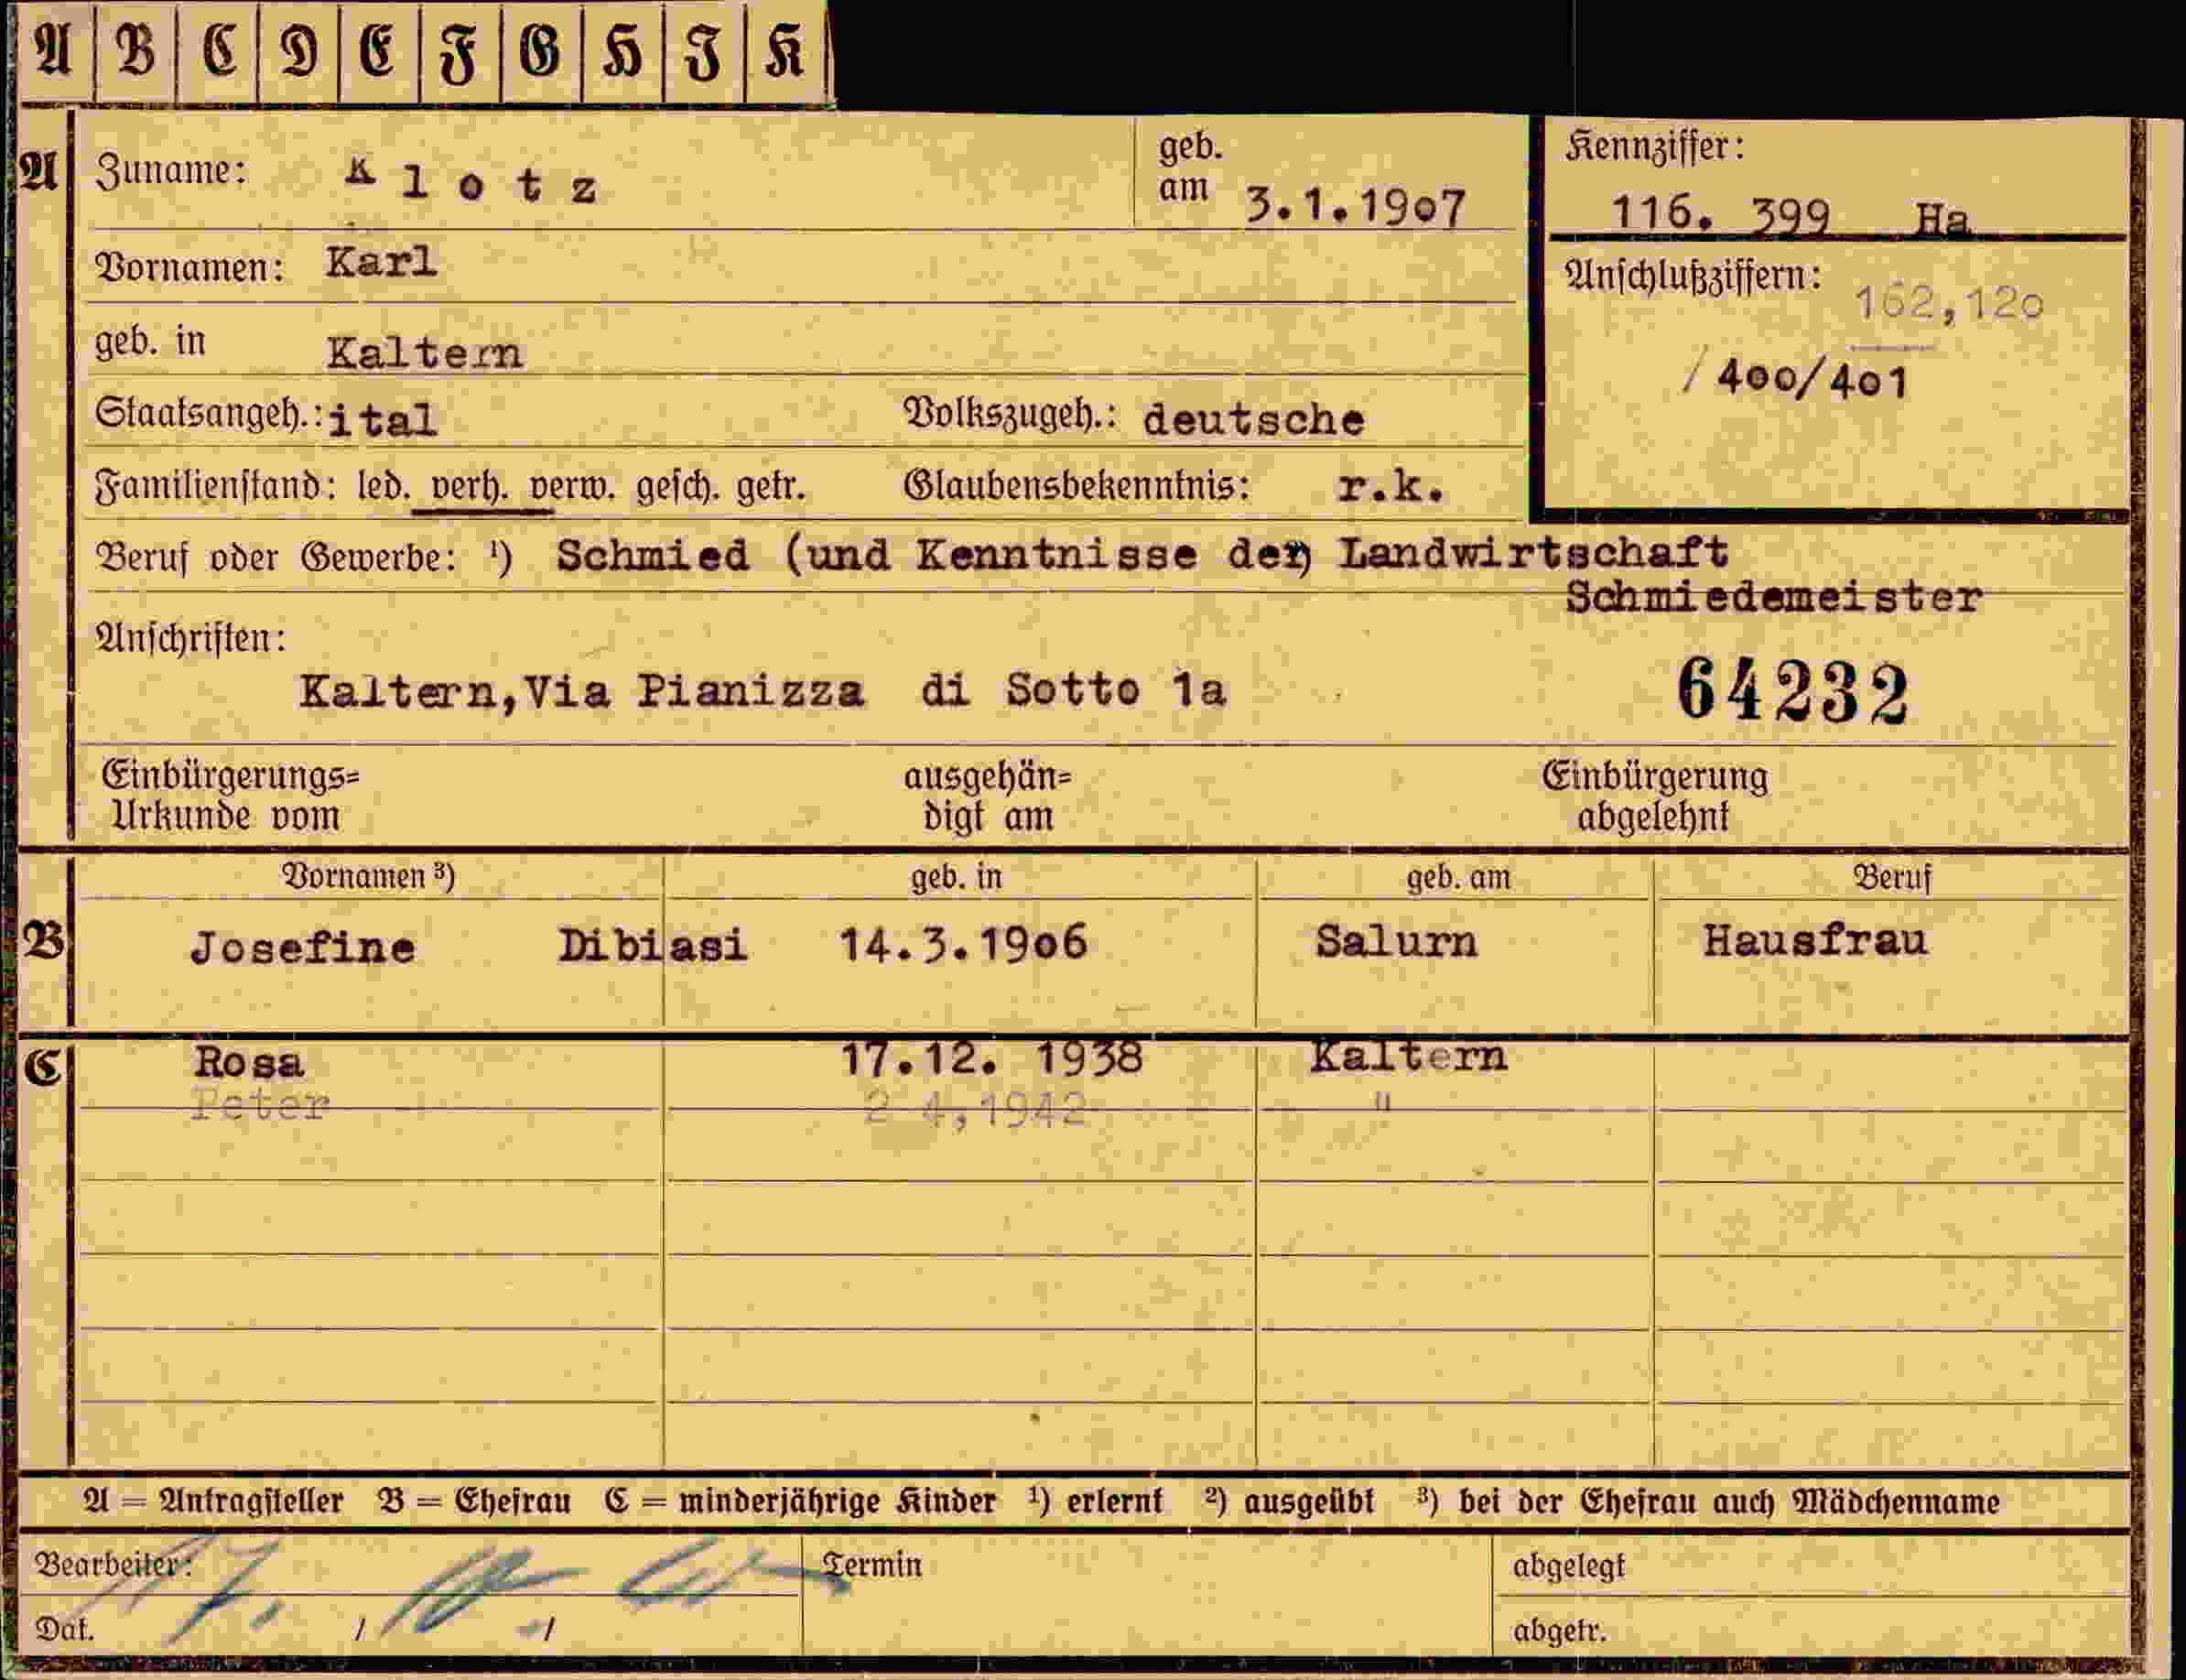 A B C D E F G H J K
A Zuname: Klotz geb. am 3.1.1907 Kennziffer: 116. 399 Ha
Vornamen: Karl Anschlußziffern: 162,120
geb. in Kaltern / 400/401
Staatsangeh.: ital Volkszugeh.: deutsche
Familienstand: led. verh. verw. gesch. getr. Glaubensbekenntnis: r.k.
Beruf oder Gewerbe: ¹) Schmied (und Kenntnisse der) Landwirtschaft
Schmiedemeister
Anschriften:
Kaltern,Via Pianizza di Sotto 1a 64232
Einbürgerungs= ausgehän= Einbürgerung
Urkunde vom digt am abgelehnt
Vornamen ³) geb. in geb. am Beruf
B Josefine Dibiasi 14.3.1906 Salurn Hausfrau
C Rosa 17.12. 1938 Kaltern
Peter 2 4,1942 "
A = Antragsteller B = Ehefrau C = minderjährige Kinder ¹) erlernt ²) ausgeübt ³) bei der Ehefrau auch Mädchenname
Bearbeiter: Termin abgelegt
Dat. / / abgetr.